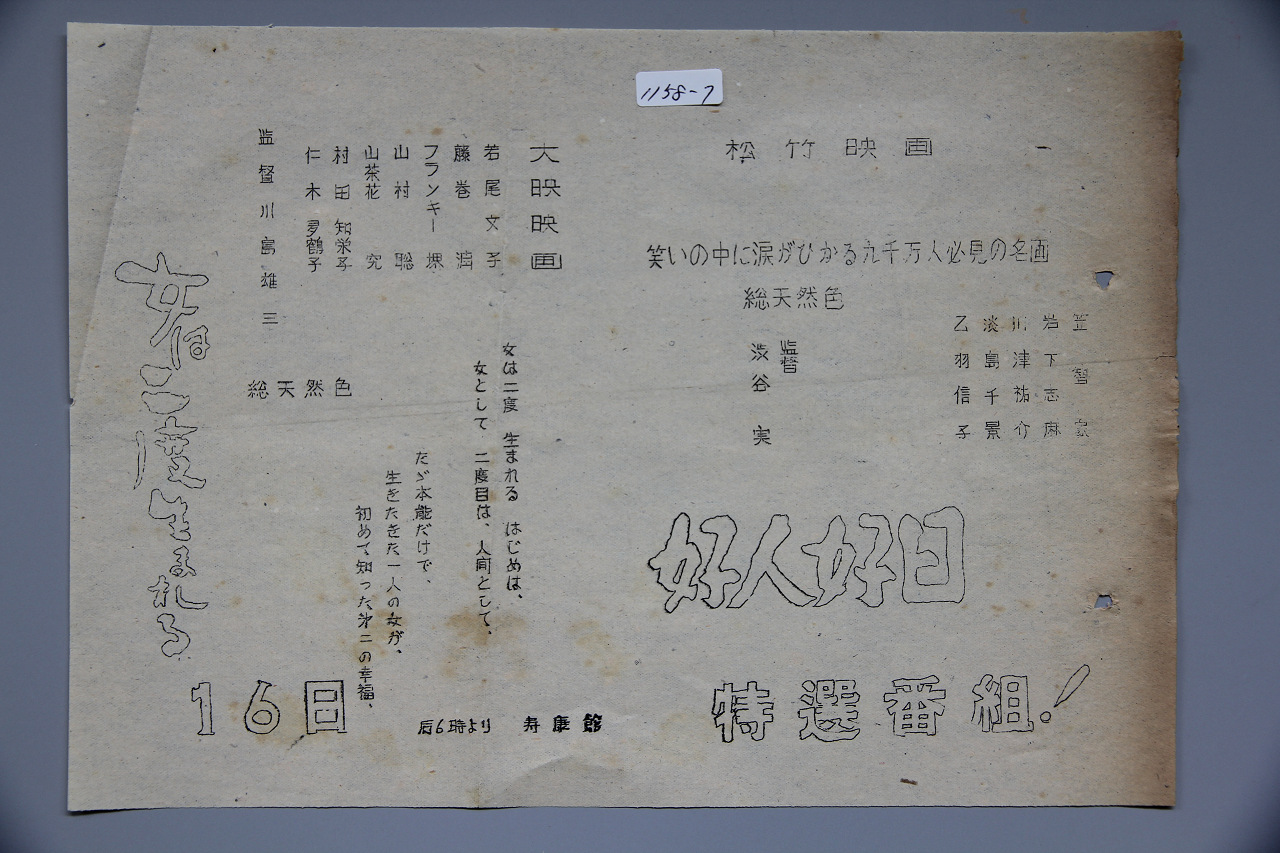 1158-7
松竹映画
笑いの中に涙がひかる九千万人必見の名画
総天然色
笠智衆
岩下志麻
川津祐介
淡島千景
乙羽信子
監督
渋谷実
好人好日
特選番組!
大映映画
若尾文子
藤巻潤
フランキー堺
山村聡
山茶花究
村田知栄子
仁木多鶴子
監督川島雄三
女は二度生まれる
総天然色
女は二度生まれる はじめは、
女として 二度目は、人间として、
たゞ本能だけで、
生きたきた一人の女が、
初めて知った第二の幸福、
16日
后6時より 寿康館